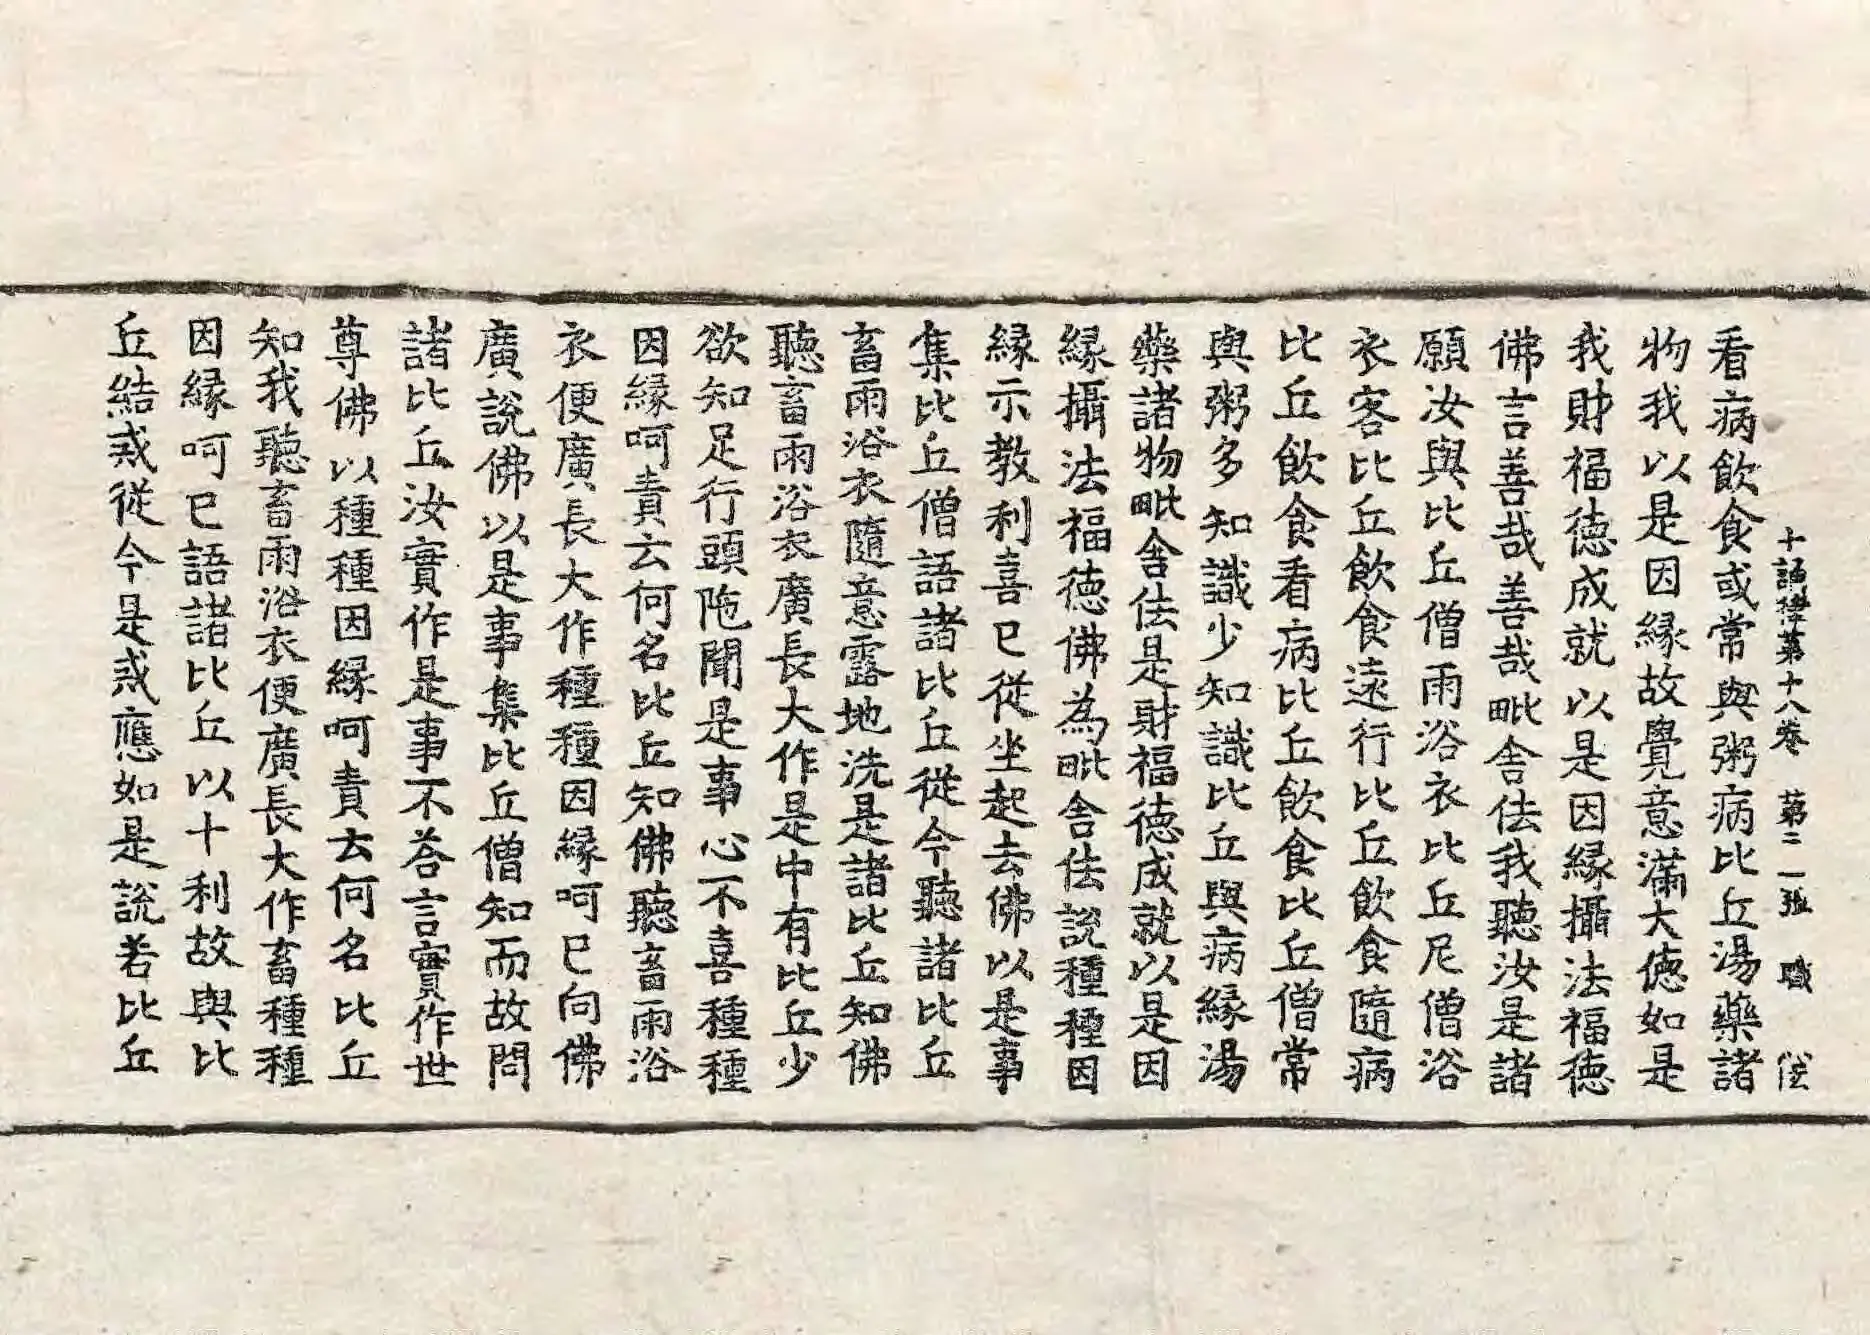 十誦律第十八卷 第二一張 職 伩
看病飲食或常與粥病比丘湯藥諸
物我以是因緣故覺意滿大德如是
我財福德成就以是因緣攝法福德
佛言善哉善哉毗舍佉我聽汝是諸
願汝與比丘僧雨浴衣比丘尼僧浴
衣客比丘飲食遠行比丘飲食隨病
比丘飲食看病比丘飲食比丘僧常
與粥多知識少知識比丘與病緣湯
藥諸物毗舍佉是財福德成就以是因
緣攝法福德佛為毗舍佉說種種因
緣示教利喜已從坐起去佛以是事
集比丘僧語諸比丘從今聽諸比丘
畜雨浴衣隨意露地洗是諸比丘知佛
聽畜雨浴衣廣長大作是中有比丘少
欲知足行頭陁聞是事心不喜種種
因緣呵責云何名比丘知佛聽畜雨浴
衣便廣長大作種種因緣呵已向佛
廣說佛以是事集比丘僧知而故問
諸比丘汝實作是事不荅言實作世
尊佛以種種因緣呵責云何名比丘
知我聽畜雨浴衣便廣長大作畜種種
因緣呵已語諸比丘以十利故與比
丘結戒從今是戒應如是說若比丘